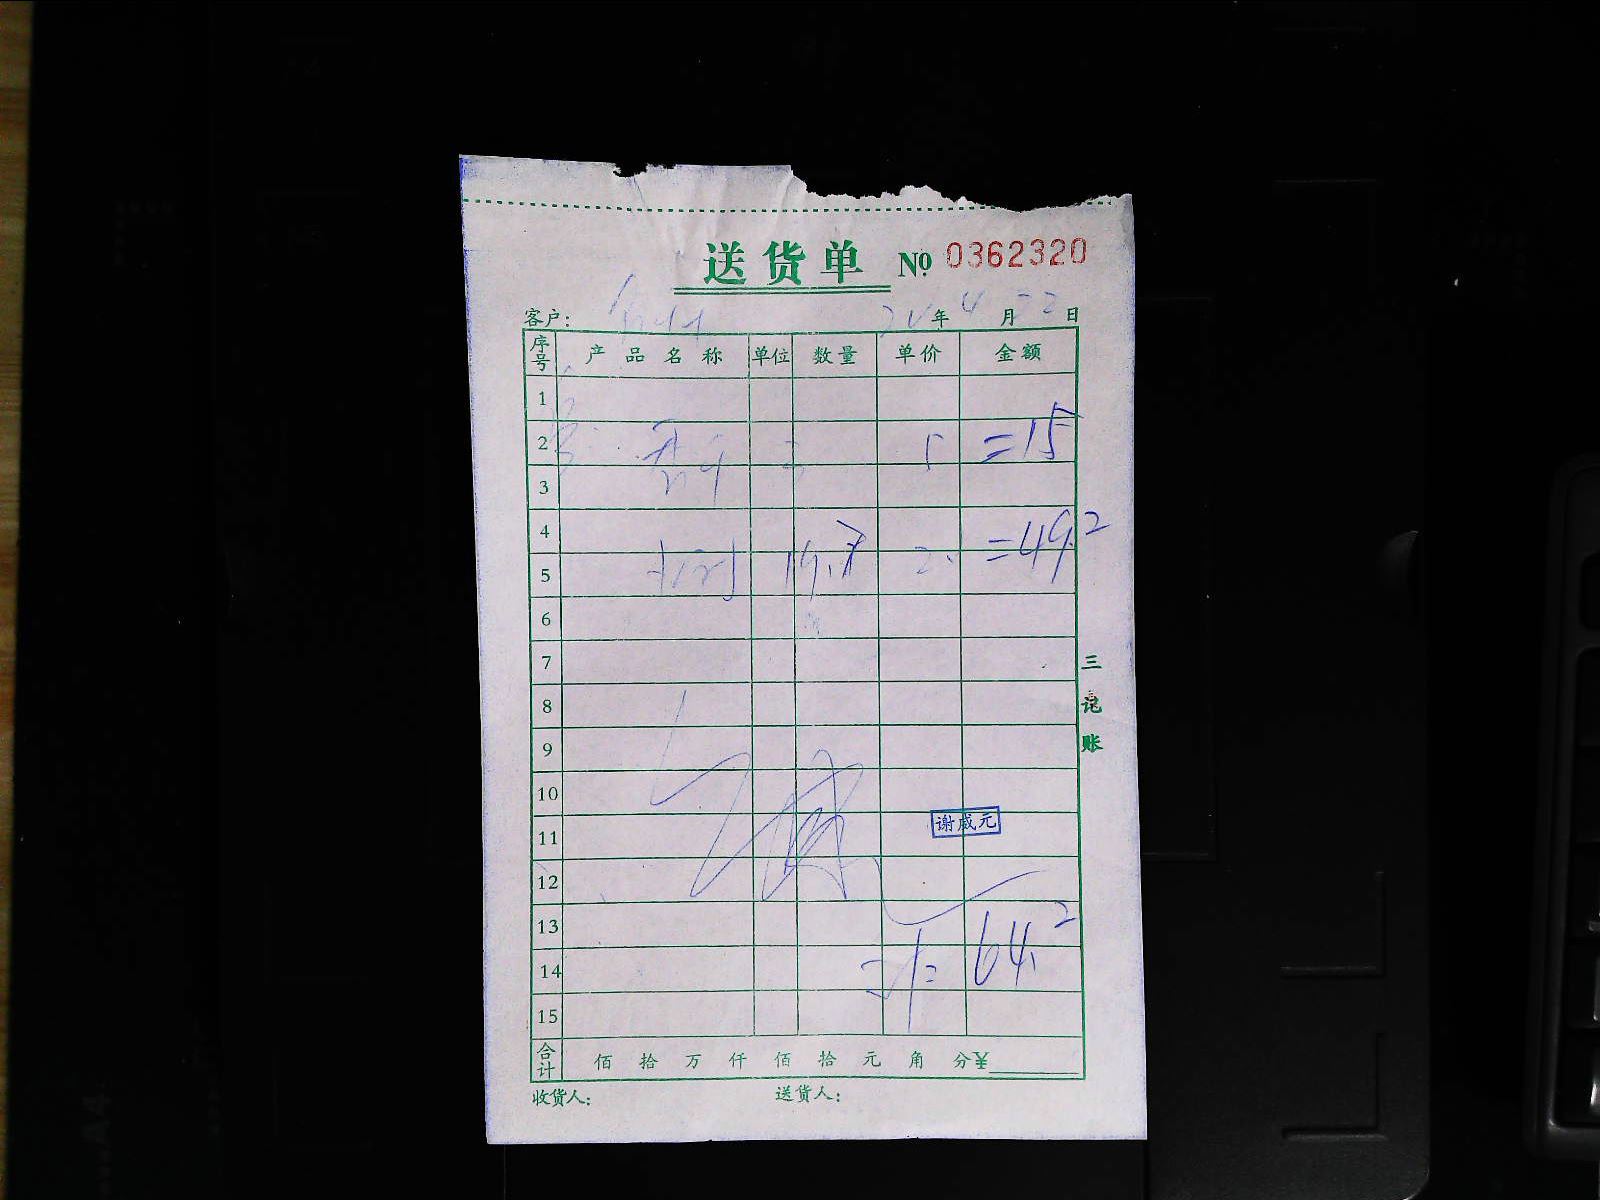 送货单 № 0362320
客户： 年 4 月 22 日
序号 产品名称 单位 数量 单价 金额
1
2 5 =15
3
4 =49.2
5
6
7
三记账
8
9
10
11 谢威元
12
13 64.2
14
15
合计 佰 拾 万 仟 佰 拾 元 角 分 ¥
收货人： 送货人：